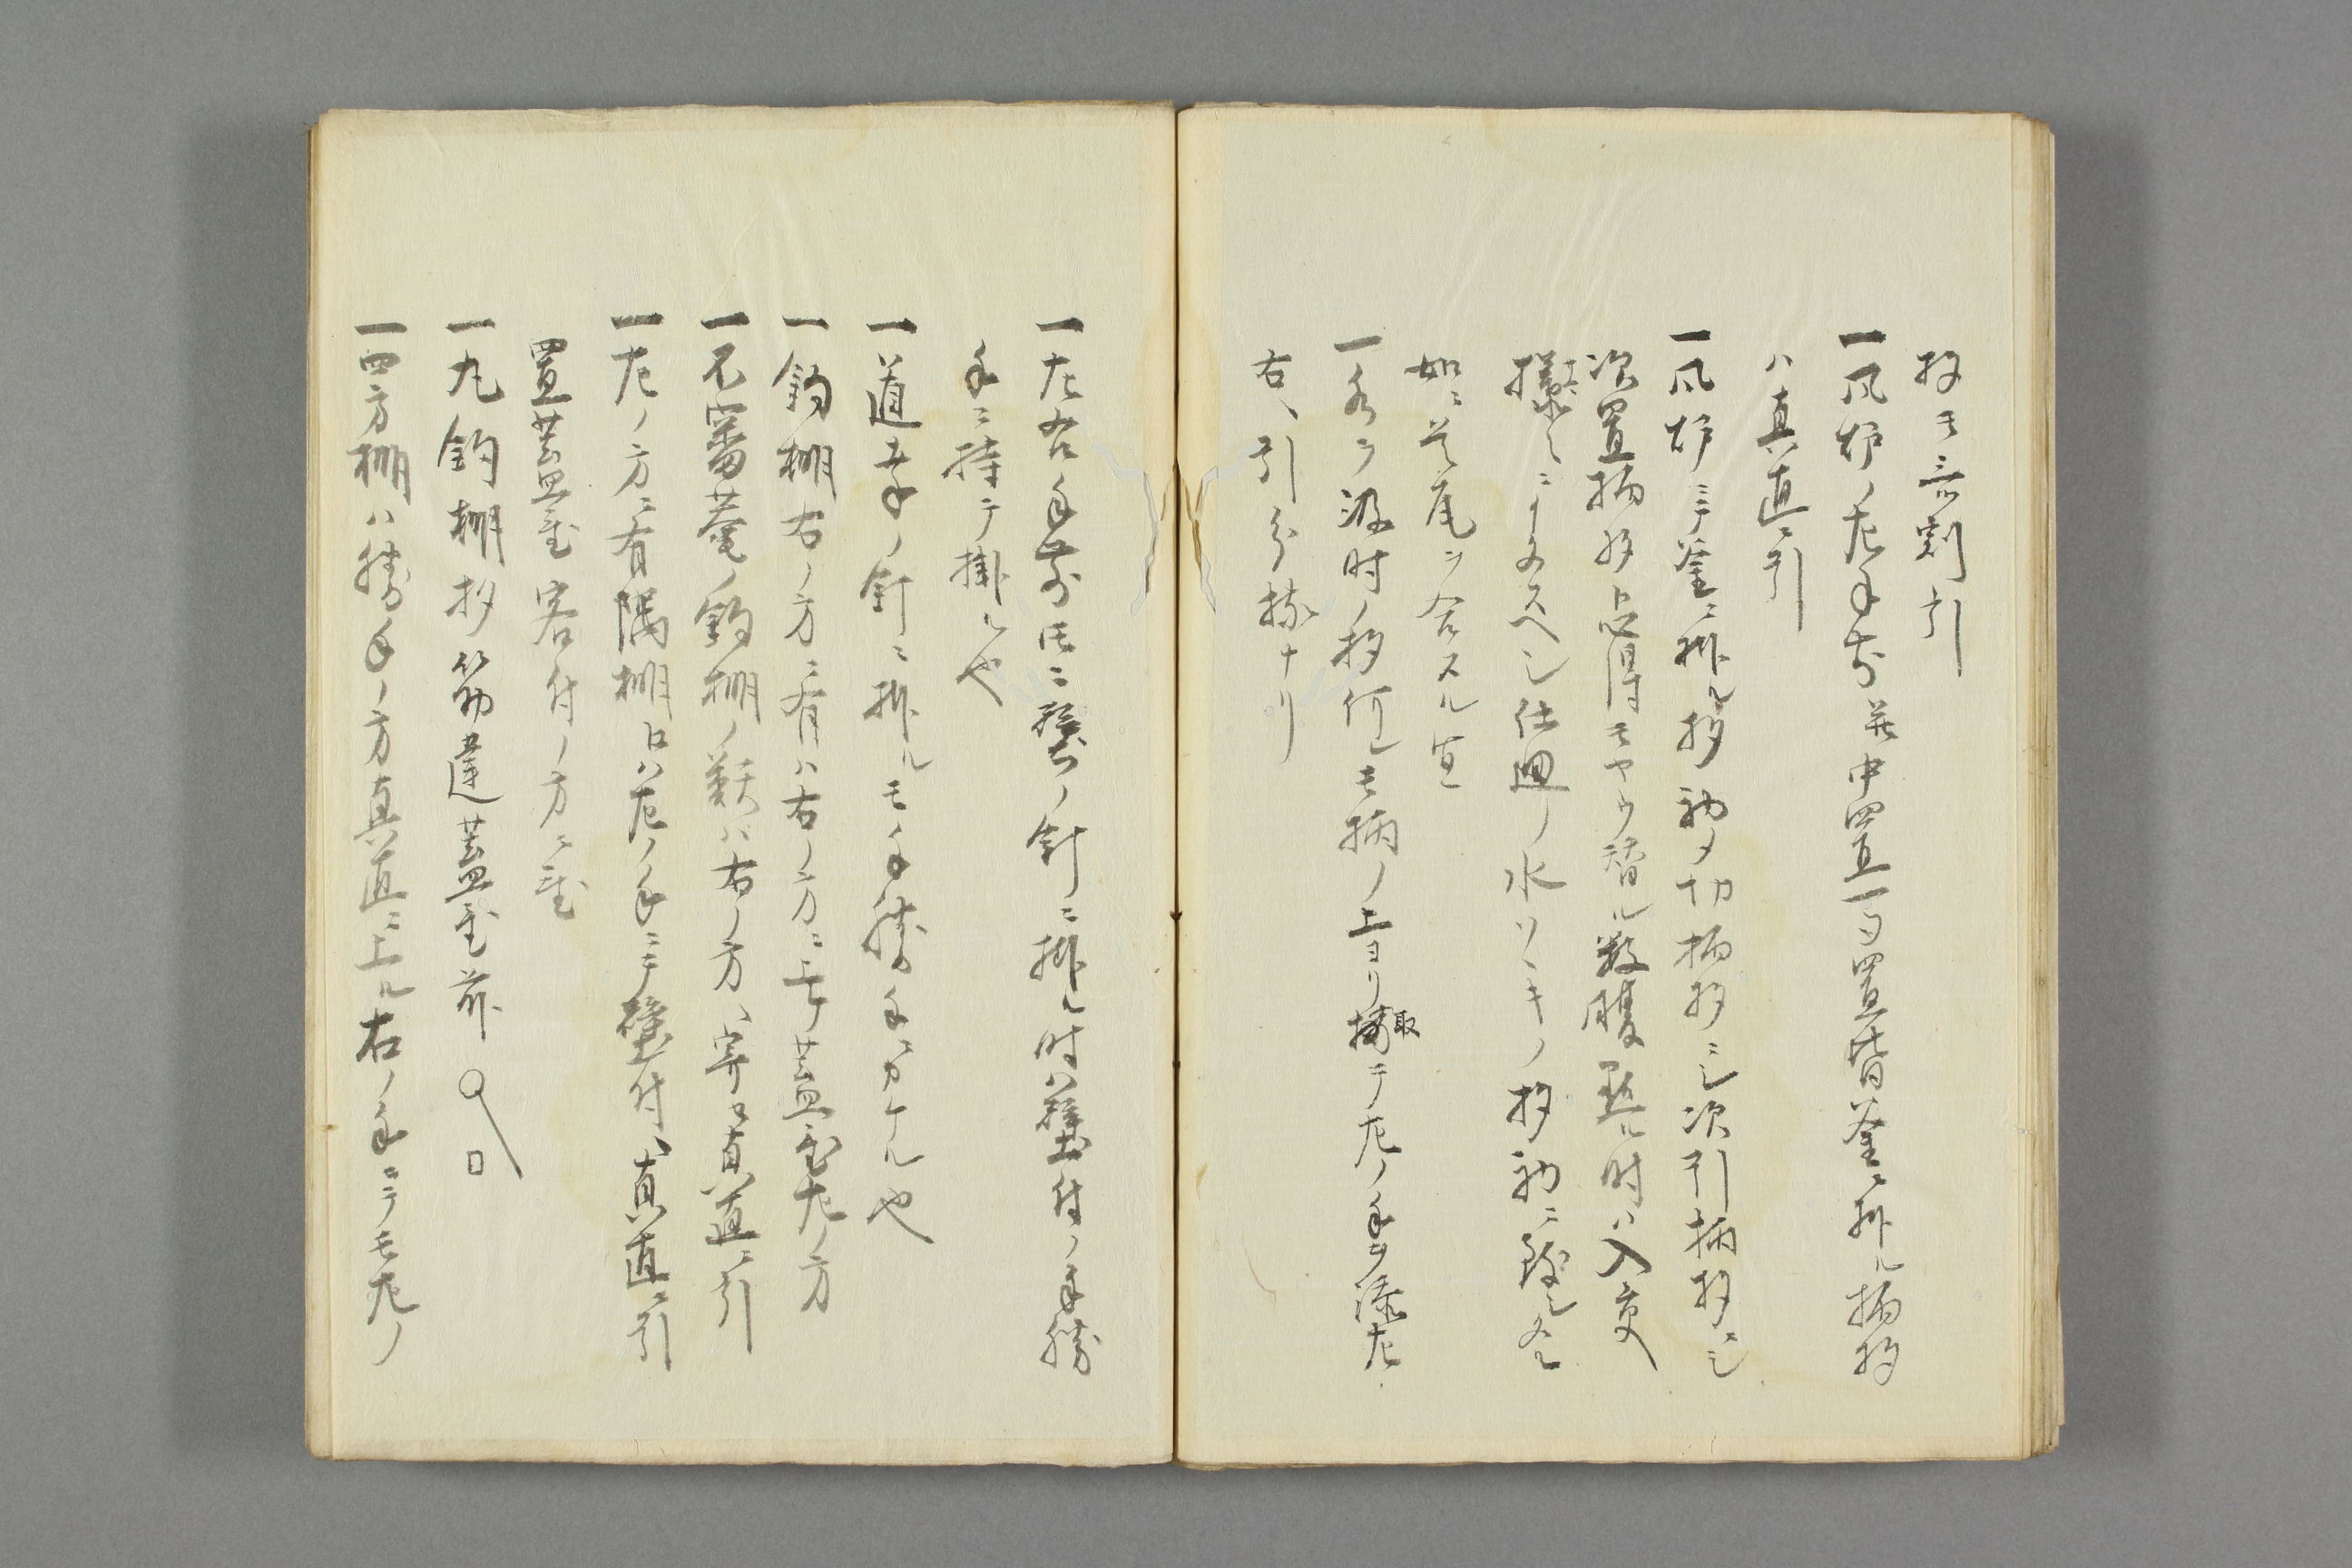 杓モ意割引
一風炉ノ左手前并中置一ツ置皆釜ニ掛ル柄杓
ハ真直ニ引
一風炉ニテ釜ニ掛ル杓初メ切柄杓ニシ次引柄杓ニシ
次置柄杓ト心得モヤウ替ル数腹点ル時ハ入交
ニタスヘシ仕廻ノ水ツキノ杓初ニ
如ニ首尾ヲ合スル宜
一水ヲ汲時ノ杓何レモ柄ノ上ヨリ取テ左ノ手ヲ添左
右ヘ引分捻ナリ
一左右手前共ニ壁ノ釘ニ掛ル時ハ壁付ノ手勝
手ニ持テ掛ル也
一道幸ノ釘ニ掛ルモ手勝手ニカケル也
一釣棚右ノ方ニ有ハ右ノ方ニ上ケ蓋置左ノ方
一不審菴ノ釣棚ノ類ハ右ノ方ヘ寄セ真直ニ引
一左ノ方ニ有隅棚ナトハ左ノ手ニテ壁付ヘ真直ニ引
置蓋置客付ノ方ニ置
一丸釣棚杓筋違蓋置前
一四方棚ハ勝手ノ方真直ニ上ル右ノ手ニテモ左ノ